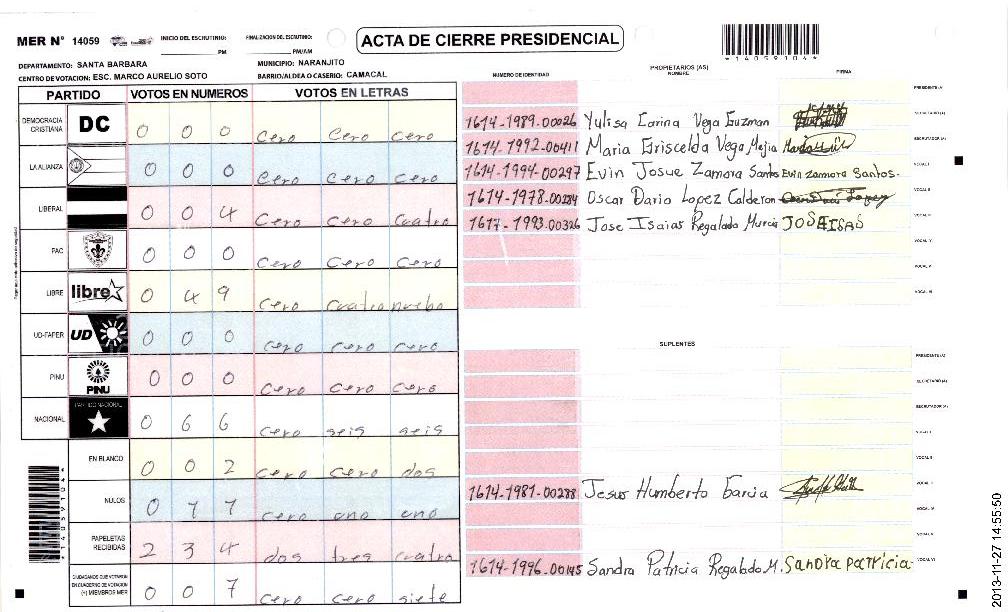 MER N° 14059 INICIO DEL ESCRUTINIO: PM FINALIZACION DEL ESCRUTINIO: PM/AM
ACTA DE CIERRE PRESIDENCIAL
*14059104*
DEPARTAMENTO: SANTA BARBARA MUNICIPIO: NARANJITO
CENTRO DE VOTACION: ESC. MARCO AURELIO SOTO BARRIO/ALDEA O CASERIO: CAMACAL
PARTIDO VOTOS EN NUMEROS VOTOS EN LETRAS
DEMOCRACIA CRISTIANA DC 0 0 0 Cero Cero Cero
LA ALIANZA 0 0 0 Cero Cero Cero
LIBERAL 0 0 4 Cero Cero Cuatro
PAC 0 0 0 Cero Cero Cero
LIBRE libre 0 4 9 Cero Cuatro nuebo
UD-FAPER UD 0 0 0 Cero Cero Cero
PINU PINU 0 0 0 Cero Cero Cero
NACIONAL PARTIDO NACIONAL 0 6 6 Cero seis seis
EN BLANCO 0 0 2 Cero Cero dos
NULOS 0 1 1 Cero uno uno
PAPELETAS RECIBIDAS 2 3 4 dos tres cuatro
CIUDADANOS QUE VOTARON EN CUADERNO DE VOTACION (+) MIEMBROS MER 0 0 7 Cero Cero siete
PROPIETARIOS (AS)
NUMERO DE IDENTIDAD NOMBRE FIRMA
PRESIDENTE(A)
1614-1989-00026 Yulisa Carina Vega Guzman SECRETARIO(A)
1614-1992-00411 Maria Griscelda Vega Mejia ESCRUTADOR(A)
1614-1994-00297 Evin Josue Zamora Santos Evin Zamora Santos. VOCAL I
1614-1978-00284 Oscar Dario Lopez Calderon VOCAL II
1617-1993-00326 Jose Isaias Regalado Murcia JOSEISAS VOCAL III
VOCAL IV
VOCAL V
VOCAL VI
SUPLENTES
PRESIDENTE(A)
SECRETARIO(A)
ESCRUTADOR(A)
VOCAL I
VOCAL II
1614-1981-00288 Jesus Humberto Garcia VOCAL III
VOCAL IV
VOCAL V
1614-1996-00145 Sandra Patricia Regalado M. Sandra patricia VOCAL VI
*14059104*
2013-11-27 14:55:50